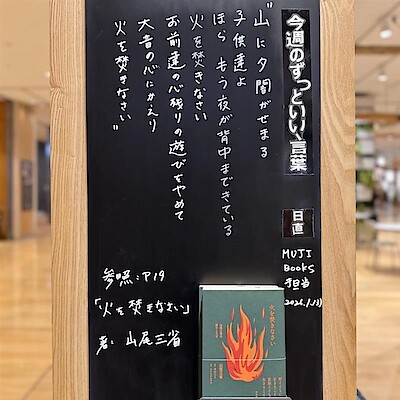 今週のずっといい言葉
日直
MUJI
BOOKS
担当
"山に夕闇がせまる
子供達よ
ほら もう夜が背中まできている
火を焚きなさい
お前達の心残りの遊びをやめて
大昔の心にかえり
火を焚きなさい"
参照:P19
「火を焚きなさい」
著:山尾三省
火を焚きなさい